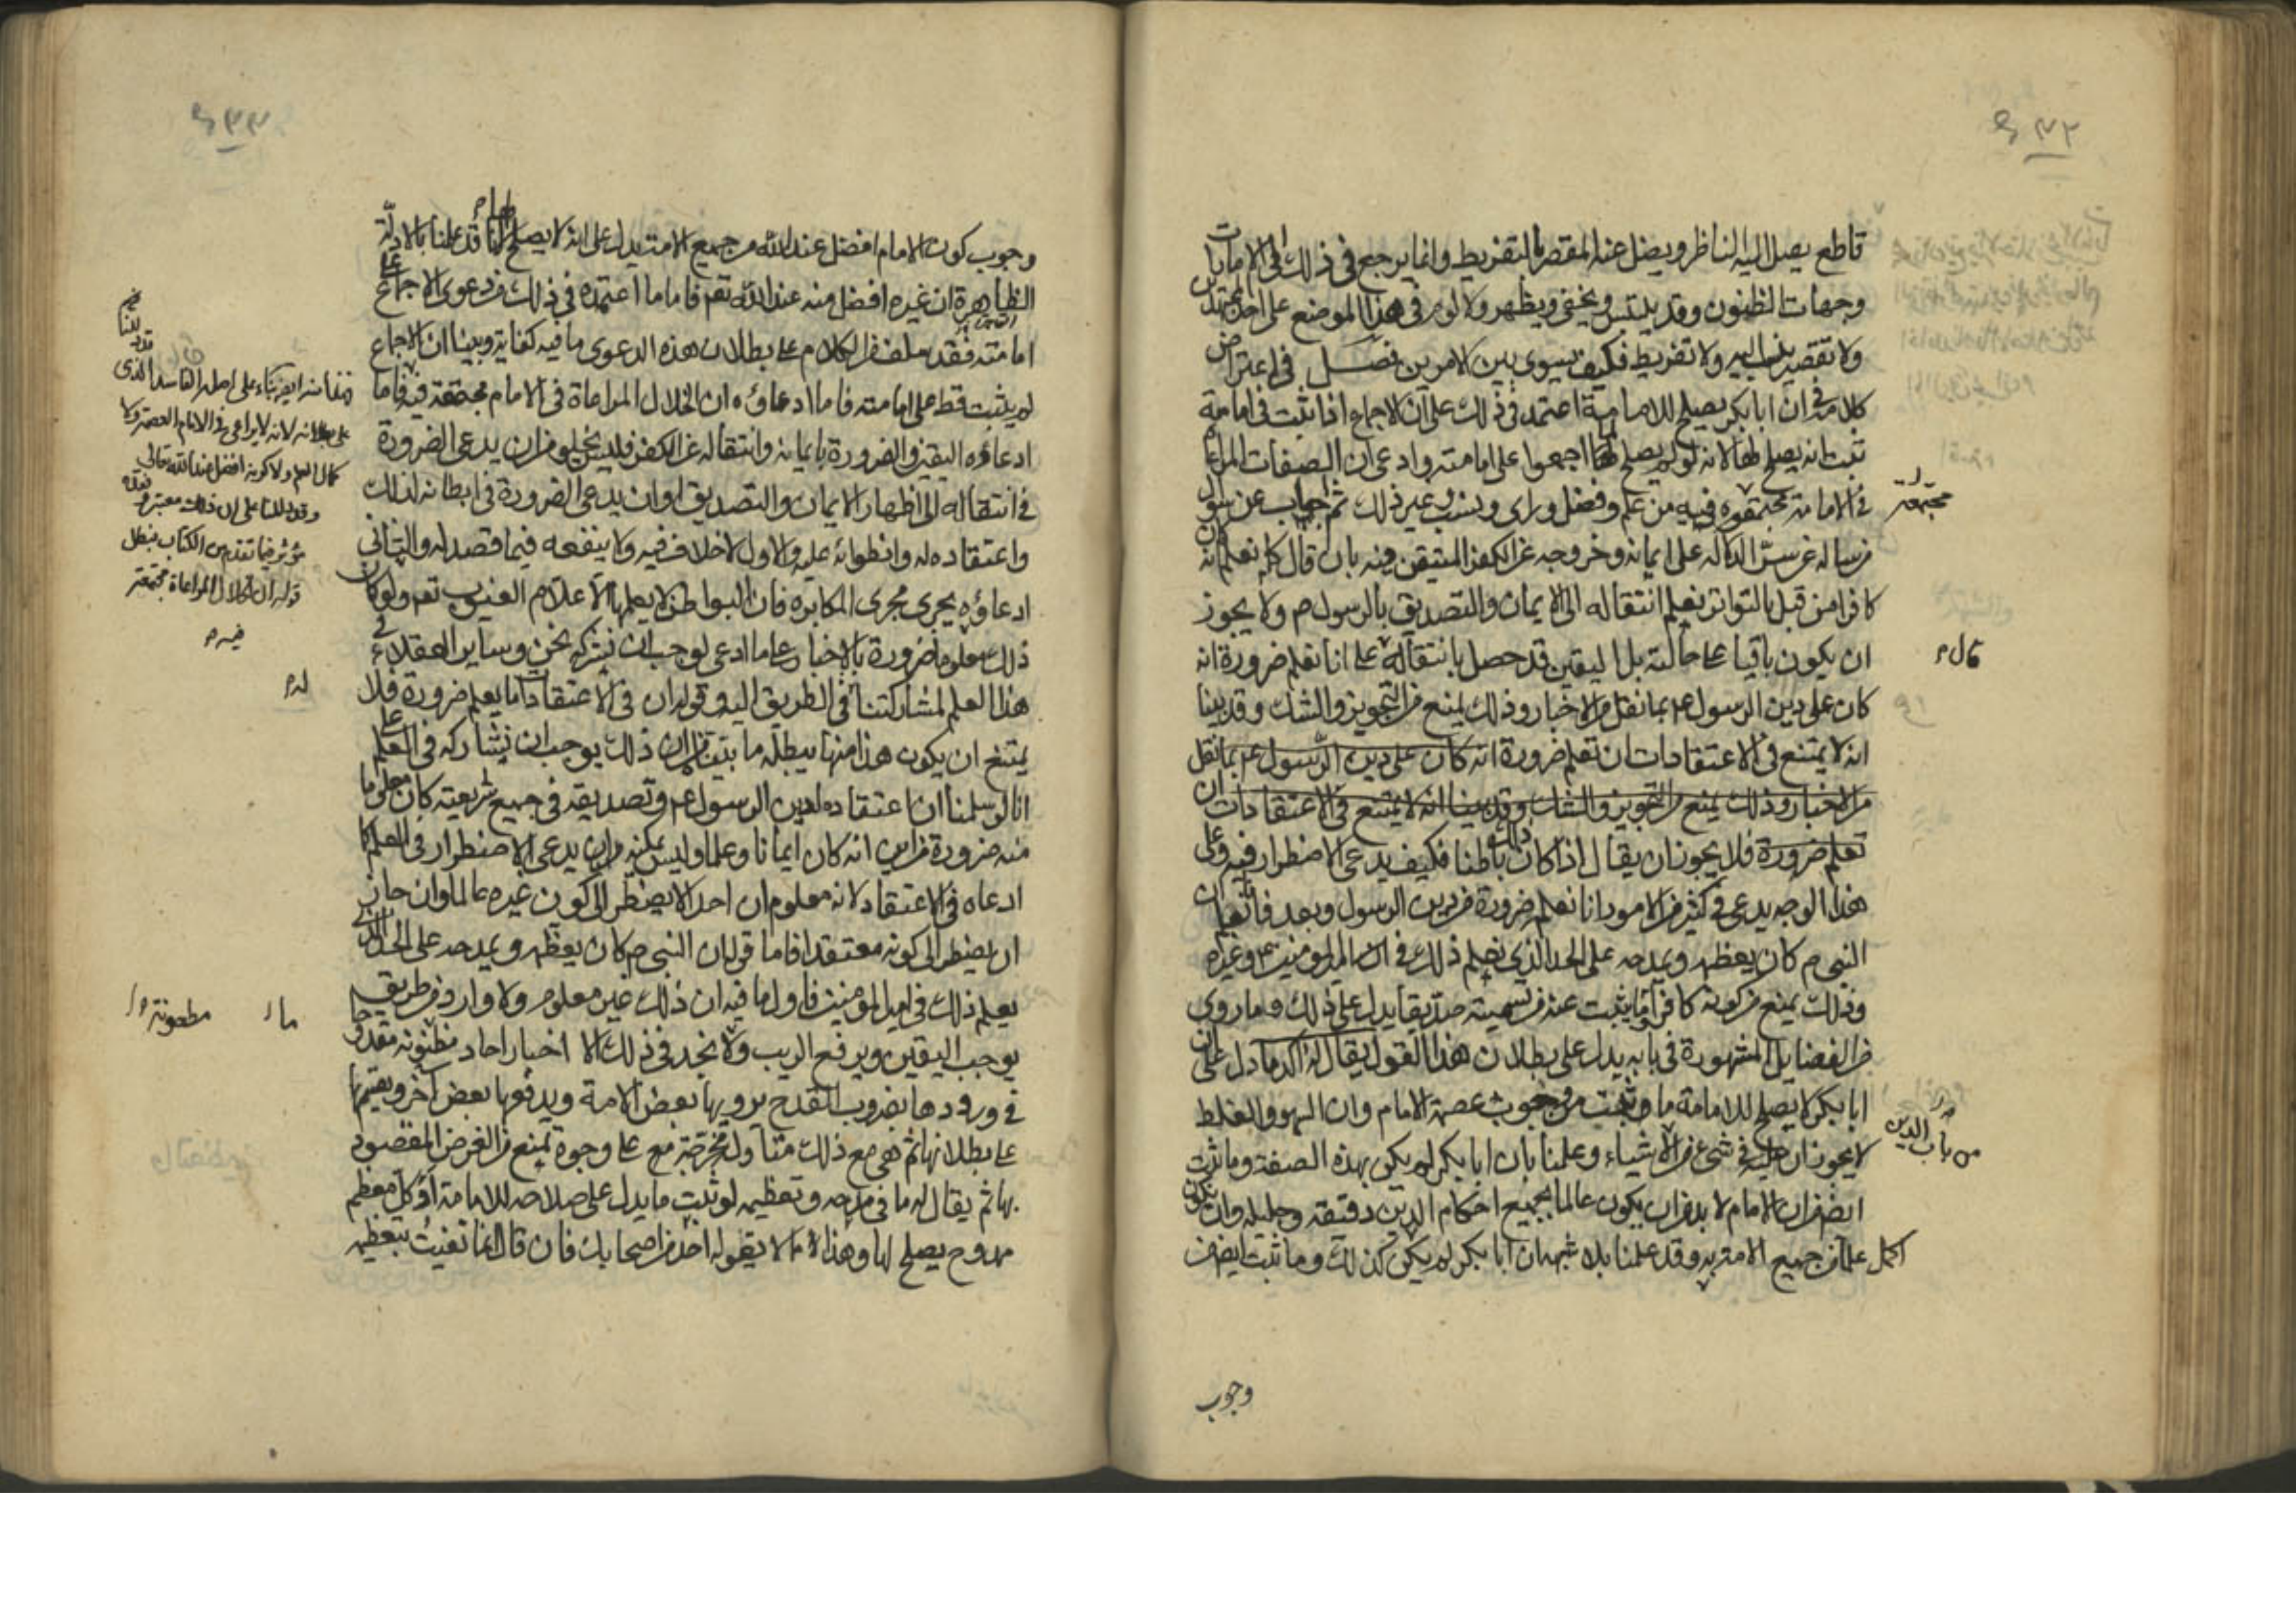 ٤٣٢
قاطع يصل اليه الناظر ويضل عنه المقصر بالتفريط وانما يرجع في ذلك الى الامارات
وجهات الظنون وقد يلتبس ويخفى ويظهر ولا لوم في هذا الموضع على احد مجتهد
ولا تقصير ينسب اليه ولا تفريط فكيف يسوى بين الامرين فصل في اعتراض
كلامه في ان ابا بكر يصلح للامامة اعتمد في ذلك على ان الاجماع اذا ثبت في امامته
ثبت انه يصلح لها لانه لو لم يصلح لها لما اجمعوا على امامته وادعى ان الصفات المراعاة
في الامامة مجتمعة فيه من علم وفضل وراى ونسب وغير ذلك ثم اجاب عن سؤال
من ساله عن الدلالة على ايمانه وخروجه عن الكفر المتيقن منه بان قال كما نعلم انه كان
كافرا من قبل بالتواتر نعلم انتقاله الى الايمان والتصديق بالرسول م ولا يجوز
ان يكون باقيا على حالته بل اليقين قد حصل بانتقاله على انا نعلم ضرورة انه
كان على دين الرسول عم بما نقل من الاخبار وذلك يمنع من التجويز والشك وقد بينا
انه لا يمتنع في الاعتقادات ان تعلم ضرورة انه كان على دين الرسول عم بما نقل
من الاخبار وذلك يمنع من التجويز والشك وقد بينا انه لا يمتنع في الاعتقادات ان
تعلم ضرورة فلا يجوز ان يقال اذا كان ذلك باطنا فكيف يدعى الاضطرار فيه وعلى
هذا الوجه يدعى في كثير من الامور انا نعلم ضرورة من دين الرسول وبعد فانا نعلم ان
النبي م كان يعظمه ويمدحه على الحد الذي نعلم ذلك في امير المؤمنين عم وغيره
وذلك يمنع من كونه كافرا وما يثبت عنه من تسميته صديقا يدل على ذلك وما روى
من الفضايل المشهورة في بابه يدل على بطلان هذا القول يقال له اكد ما دل على ان
ابا بكر لا يصلح للامامة ما ثبت من وجوب عصمة الامام وان السهو والغلط
لا يجوزان عليه في شيء من الاشياء وعلمنا بان ابا بكر لم يكن بهذه الصفة وما ثبت
ايضا من ان الامام لا بد من ان يكون عالما بجميع احكام الدين دقيقه وجليله وان يكون
اكمل علما من جميع الامة به وقد علمنا بلا شبهة ان ابا بكر لم يكن كذلك وما ثبت ايضا من
مجتمعة
قال م
من باب الدين
وجوب
٤٣٣
وجوب كون الامام افضل عند الله من جميع الامة يدل على انه لا يصلح لها م لانا قد علمنا بالادلة
الظاهرة ان غيره افضل منه عند الله تعم فاما ما اعتمده في ذلك من دعوى الاجماع على
امامته فقد سلف من الكلام على بطلان هذه الدعوى ما فيه كفاية وبينا ان الاجماع
لم يثبت قط على امامته فاما ادعاؤه ان الخلال المراعاة في الامام مجتمعة فيه فاما
ادعاؤه اليقين والضرورة بايمانه وانتقاله عن الكفر فليس يخلو من ان يدعى الضرورة
في انتقاله الى اظهار الايمان والتصديق او ان يدعى الضرورة في ابطانه لذلك
واعتقاده له وانطوائه عليه والاول لا خلاف فيه ولا ينفعه فيما قصد له والثاني
ادعاؤه يجرى مجرى المكابرة فان البواطن لا يعلمها الا علام الغيوب تعم ولو كان
ذلك معلوما ضرورة بالاخبار على ما ادعى لوجب ان نشركه نحن وساير العقلاء في
هذا العلم لمشاركتنا في الطريق اليه وقوله ان في الاعتقادات ما يعلم ضرورة فلا
يمتنع ان يكون هذا منها يبطله ما بيناه من ان ذلك يوجب ان نشاركه في العلم على
انا لو سلمنا ان اعتقاده لدين الرسول عم وتصديقه في جميع شريعته كان معلوما
منه ضرورة من اين انه كان ايمانا وعلما وليس يمكنه من ان يدعى الاضطرار في العلم كما
ادعاه في الاعتقاد لانه معلوم ان احدا لا يضطر الى كون غيره عالما وان جاز
ان يضطر الى كونه معتقدا فاما قوله ان النبي م كان يعظمه ويمدحه على الحد الذى
يعلم ذلك في امير المؤمنين فاول ما فيه ان ذلك غير معلوم ولا وارد من طريق
يوجب اليقين ويرفع الريب ولا نجد في ذلك الا اخبار احاد مظنونة مقدوحا
في ورودها بضروب القدح يرويها بعض الامة ويدفعها بعض آخر ويقيمها
على بطلانها ثم هي مع ذلك متأولة مخرجة مع على وجوه تمنع من الغرض المقصود
بها ثم يقال له ما في مدحه وتعظيمه لو ثبت ما يدل على صلاحه للامامة اوكل معظم
ممدوح يصلح لها وهذا مما لا يقوله احد من اصحابك فان قال انما تفنيت بتعظيمه
على بطلانه لانه لا يراعى في الامام العصمة ولا
كمال العلم ولا كونه افضل عند الله تعالى
وقد دللنا على ان ذلك معتبر
مؤثر فيما تقدم من الكتاب فبطل
قوله ان الخلال المراعاة مجتمعة
فيه م
له م
ما م
مطعونة م